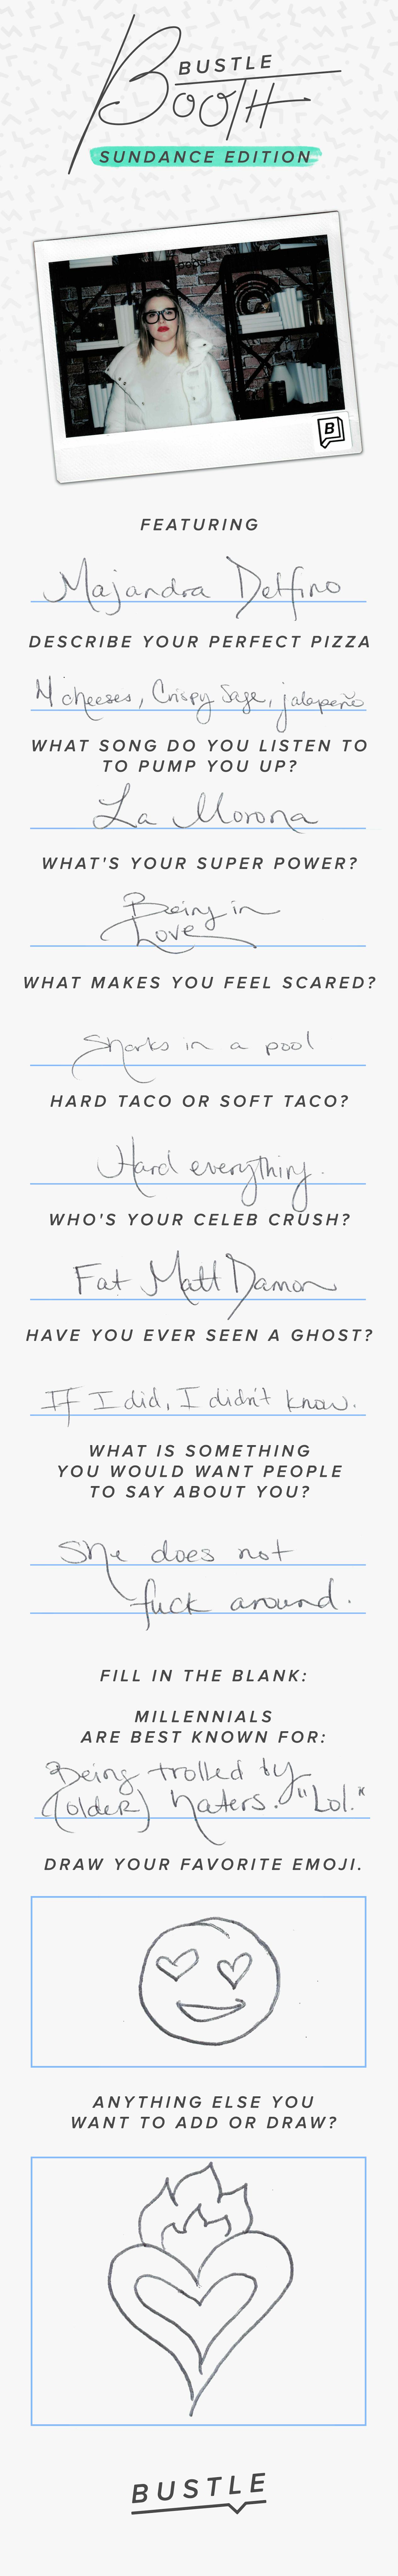 BUSTLE
BOOTH
SUNDANCE EDITION
B
FEATURING
Majandra Delfino
DESCRIBE YOUR PERFECT PIZZA
4 cheeses, Crispy Sage, jalapeño
WHAT SONG DO YOU LISTEN TO
TO PUMP YOU UP?
La Morona
WHAT'S YOUR SUPER POWER?
Being in
Love
WHAT MAKES YOU FEEL SCARED?
Sharks in a pool
HARD TACO OR SOFT TACO?
Hard everything.
WHO'S YOUR CELEB CRUSH?
Fat Matt Damon
HAVE YOU EVER SEEN A GHOST?
If I did, I didn't know.
WHAT IS SOMETHING
YOU WOULD WANT PEOPLE
TO SAY ABOUT YOU?
She does not
fuck around.
FILL IN THE BLANK:
MILLENNIALS
ARE BEST KNOWN FOR:
Being trolled by
(older) haters. "Lol."
DRAW YOUR FAVORITE EMOJI.
ANYTHING ELSE YOU
WANT TO ADD OR DRAW?
BUSTLE